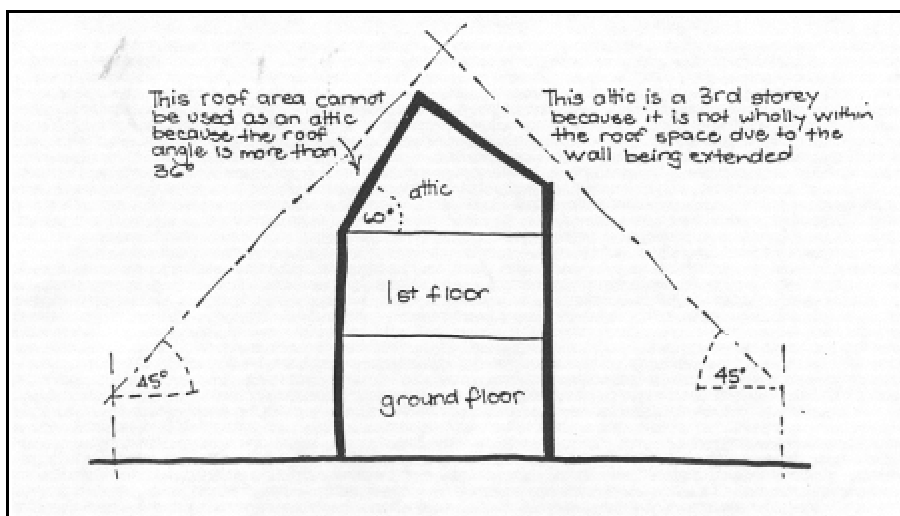 This roof area cannot
be used as an attic
because the roof
angle is more than
36°
This attic is a 3rd storey
because it is not wholly within
the roof space due to the
wall being extended
attic
60°
1st floor
45°
45°
ground floor